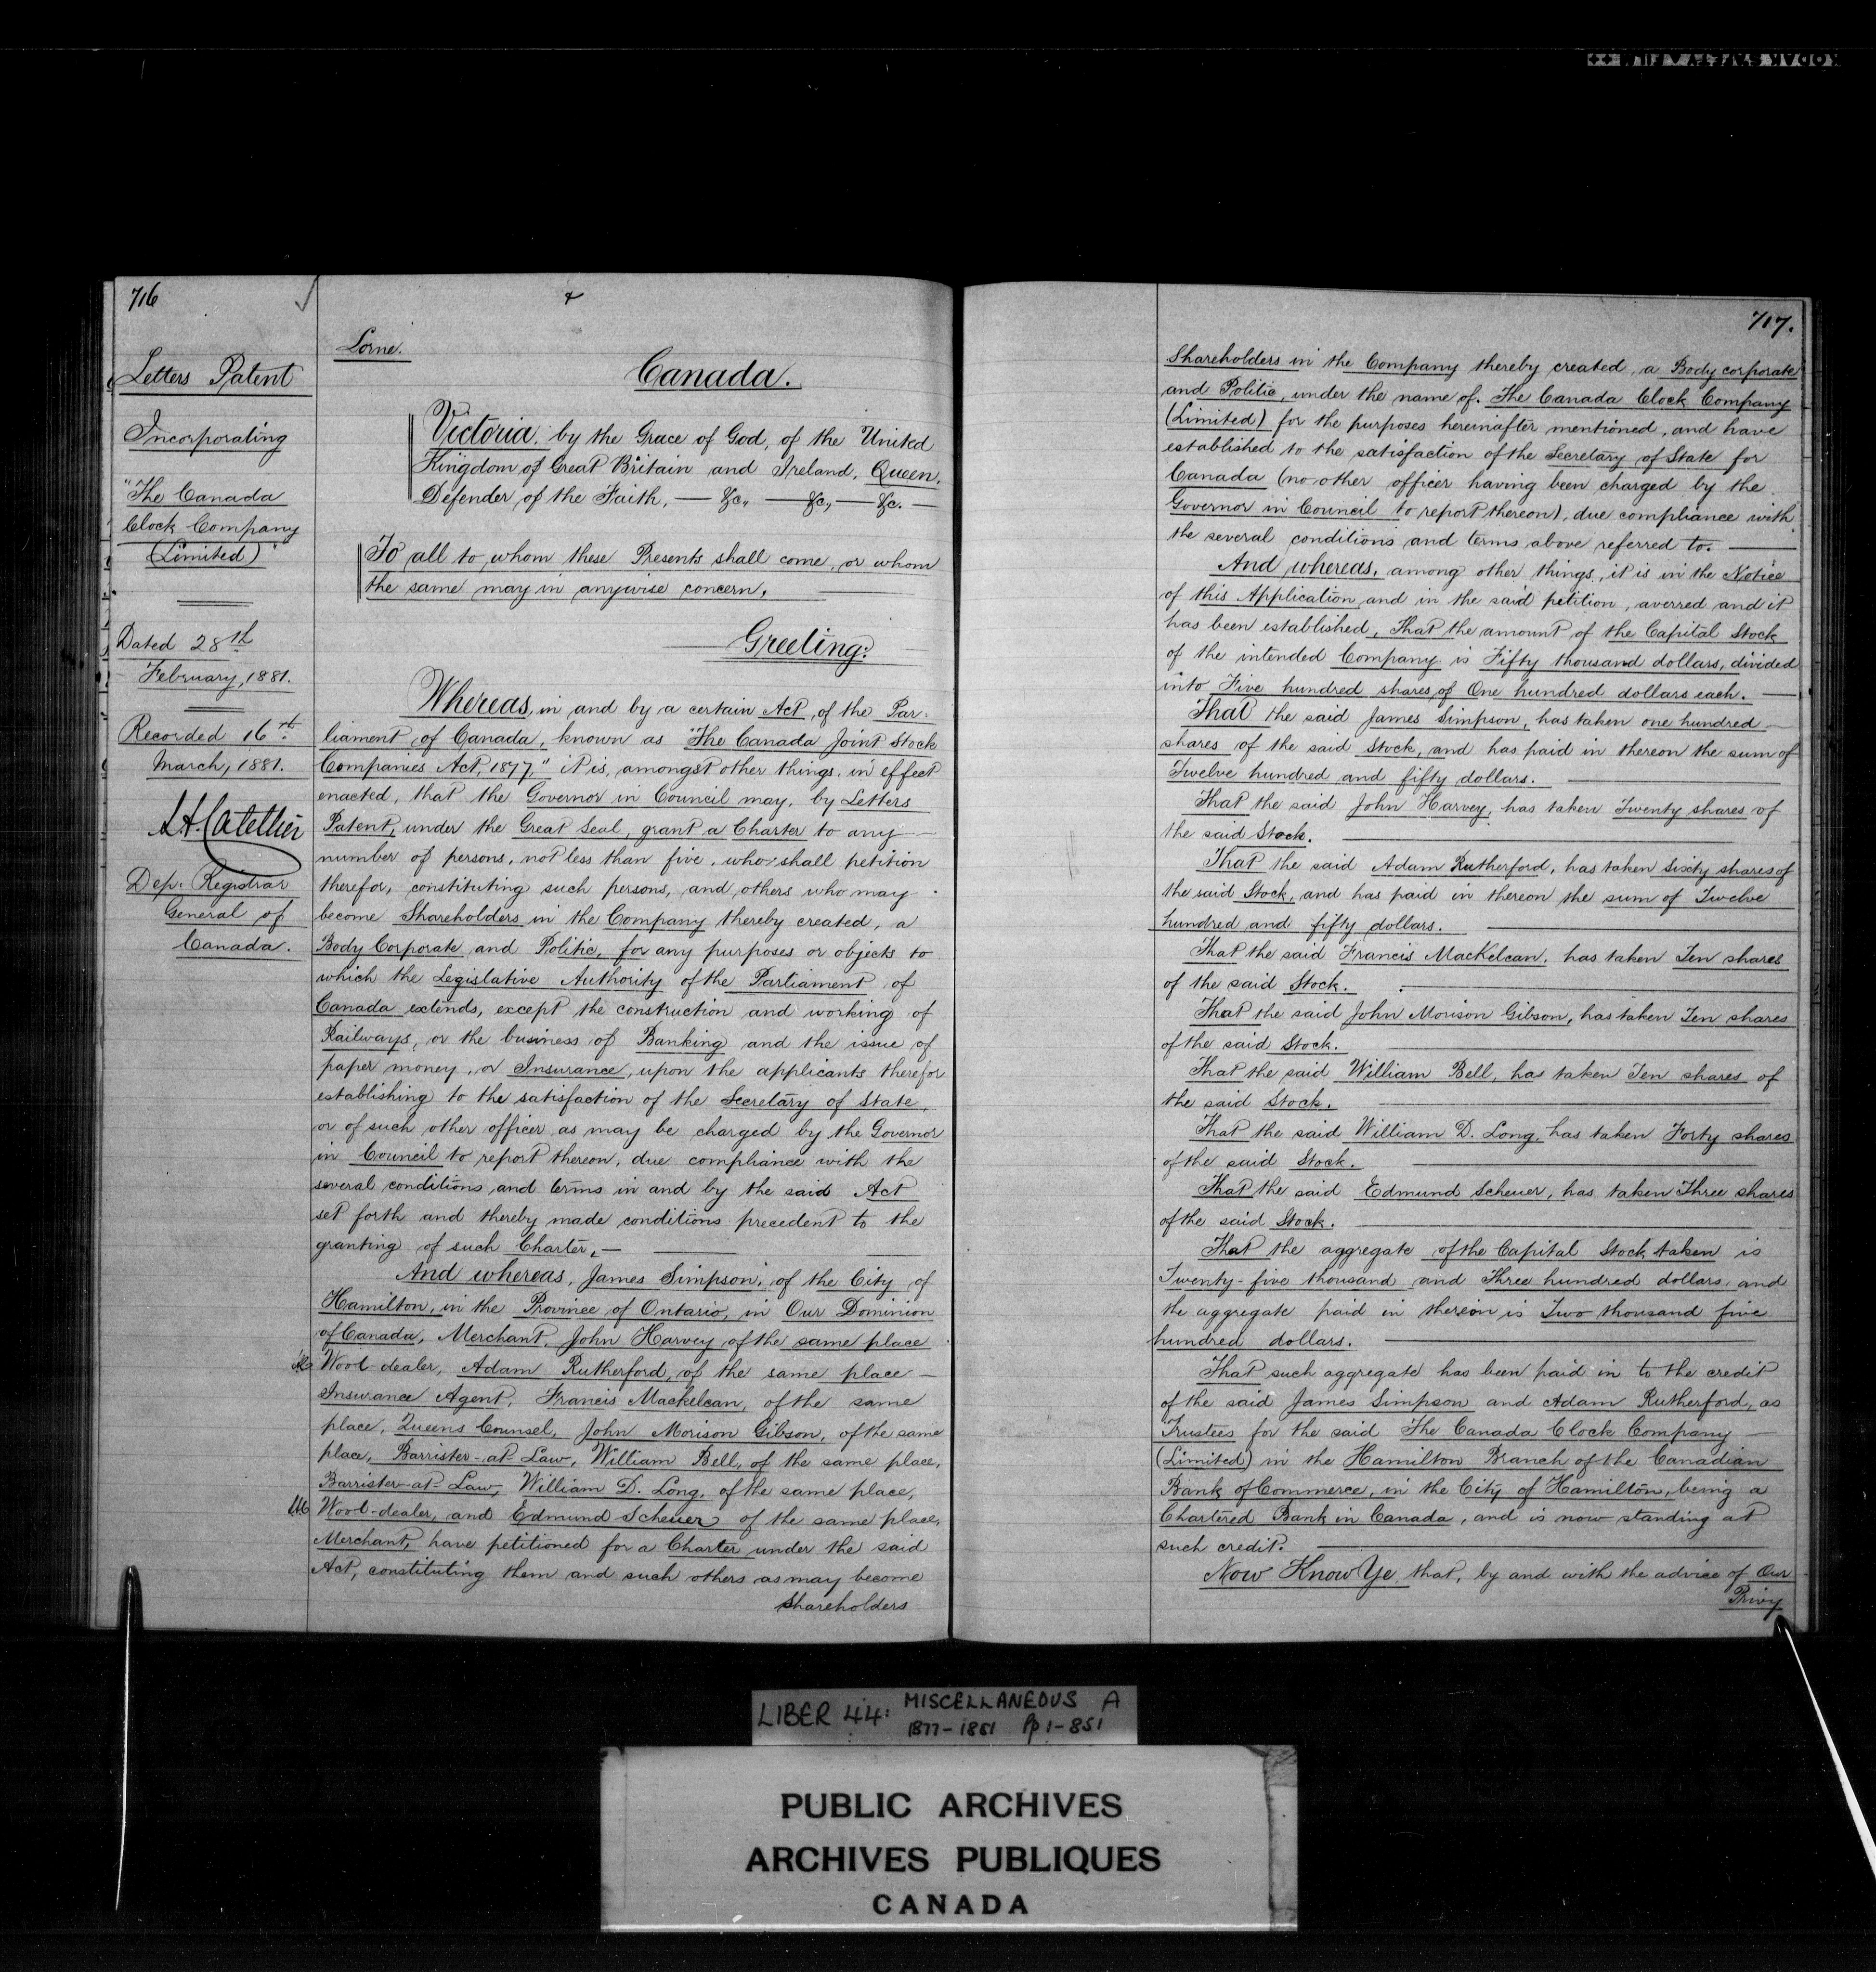 716
Letters Patent
Incorporating
"The Canada
Clock Company
(Limited)"
Dated 28th
February, 1881.
Recorded 16th
March, 1881.
L. A. Catellier
Dep: Registrar
General of
Canada.
Lorne.
Canada.
Victoria, by the Grace of God, of the United
Kingdom of Great Britain and Ireland, Queen,
Defender of the Faith, — &c., — &c., — &c. —
To all to whom these Presents shall come, or whom
the same may in anywise concern,
Greeting:
Whereas, in and by a certain Act, of the Par-
liament of Canada, known as "The Canada Joint Stock
Companies Act, 1877," it is, amongst other things, in effect
enacted, that the Governor in Council may, by Letters
Patent, under the Great Seal, grant a Charter to any
number of persons, not less than five, who shall petition
therefor, constituting such persons, and others who may
become Shareholders in the Company thereby created, a
Body Corporate and Politic, for any purposes or objects to
which the Legislative Authority of the Parliament of
Canada extends, except the construction and working of
Railways, or the business of Banking and the issue of
paper money, or Insurance, upon the applicants therefor
establishing to the satisfaction of the Secretary of State,
or of such other officer as may be charged by the Governor
in Council to report thereon, due compliance with the
several conditions and terms in and by the said Act
set forth and thereby made conditions precedent to the
granting of such Charter, —
And whereas, James Simpson, of the City of
Hamilton, in the Province of Ontario, in Our Dominion
of Canada, Merchant, John Harvey of the same place
Wool-dealer, Adam Rutherford, of the same place —
Insurance Agent, Francis Mackelcan, of the same
place, Queens Counsel, John Morison Gibson, of the same
place, Barrister-at-Law, William Bell, of the same place,
Barrister-at-Law, William D. Long, of the same place,
Wool-dealer, and Edmund Scheuer of the same place,
Merchant, have petitioned for a Charter under the said
Act, constituting them and such others as may become
Shareholders
717.
Shareholders in the Company thereby created, a Body corporate
and Politic, under the name of. The Canada Clock Company
(Limited) for the purposes hereinafter mentioned, and have
established to the satisfaction of the Secretary of State for
Canada (no other officer having been charged by the
Governor in Council to report thereon), due compliance with
the several conditions and terms above referred to. —
And whereas, among other things, it is in the Notice
of this Application and in the said petition, averred and it
has been established, That the amount of the Capital Stock
of the intended Company is Fifty thousand dollars, divided
into Five hundred shares, of One hundred dollars each. —
That the said James Simpson, has taken one hundred —
shares of the said Stock, and has paid in thereon the sum of
Twelve hundred and fifty dollars.
That the said John Harvey, has taken Twenty shares of
the said Stock.
That the said Adam Rutherford, has taken Sixty shares of
the said Stock, and has paid in thereon the sum of Twelve
hundred and fifty dollars.
That the said Francis MacKelcan, has taken Ten shares
of the said Stock.
That the said John Morison Gibson, has taken Ten shares
of the said Stock.
That the said William Bell, has taken Ten shares of
the said Stock.
That the said William D. Long, has taken Forty shares
of the said Stock.
That the said Edmund Scheuer, has taken Three shares
of the said Stock.
That the aggregate of the Capital Stock taken is
Twenty-five thousand and Three hundred dollars, and
the aggregate paid in thereon is Two thousand five
hundred dollars.
That such aggregate has been paid in to the credit
of the said James Simpson and Adam Rutherford, as
Trustees for the said The Canada Clock Company —
(Limited) in the Hamilton Branch of the Canadian
Bank of Commerce, in the City of Hamilton, being a
Chartered Bank in Canada, and is now standing at
such credit.
Now Know Ye, that, by and with the advice of Our
Privy
LIBER 44: MISCELLANEOUS A
1877-1881 Pp 1-851
PUBLIC ARCHIVES
ARCHIVES PUBLIQUES
CANADA